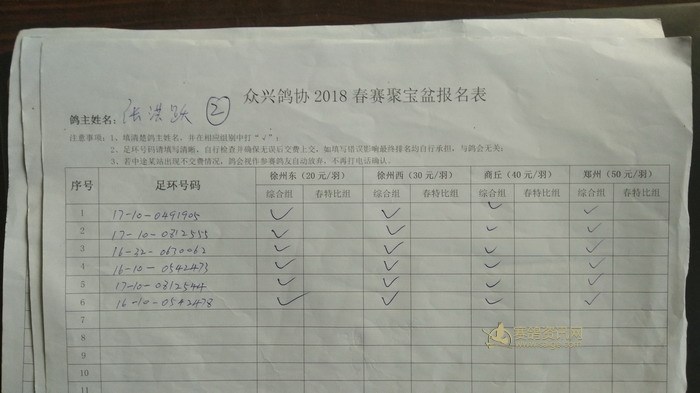 众兴鸽协 2018 春赛聚宝盆报名表
鸽主姓名：张洪跃 ②
注意事项：1、填清楚鸽主姓名，并在相应组别中打“√”；
2、足环号码请填写清晰，自行检查并确保无误后交费上交，如填写错误影响最终排名均自行承担，与鸽会无关；
3、若中途某站出现不交费情况，鸽会视作参赛鸽友自动放弃，不再打电话确认。
序号 足环号码 徐州东（20 元/羽） 徐州西（30 元/羽） 商丘（40 元/羽） 郑州（50 元/羽）
综合组 春特比组 综合组 春特比组 综合组 春特比组 综合组 春特比组
1 17-10-0491905 ✓ ✓ ✓ ✓
2 17-10-0812555 ✓ ✓ ✓ ✓
3 16-32-0670062 ✓ ✓ ✓ ✓
4 16-10-0542473 ✓ ✓ ✓ ✓
5 17-10-0812544 ✓ ✓ ✓ ✓
6 16-10-0542478 ✓ ✓ ✓ ✓
7
8
9
10
11